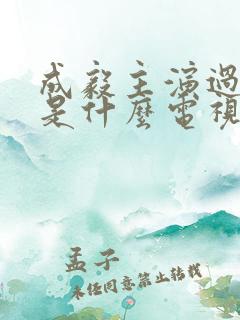 成毅主演過
是什麼電視
孟子
未經同意禁止轉載